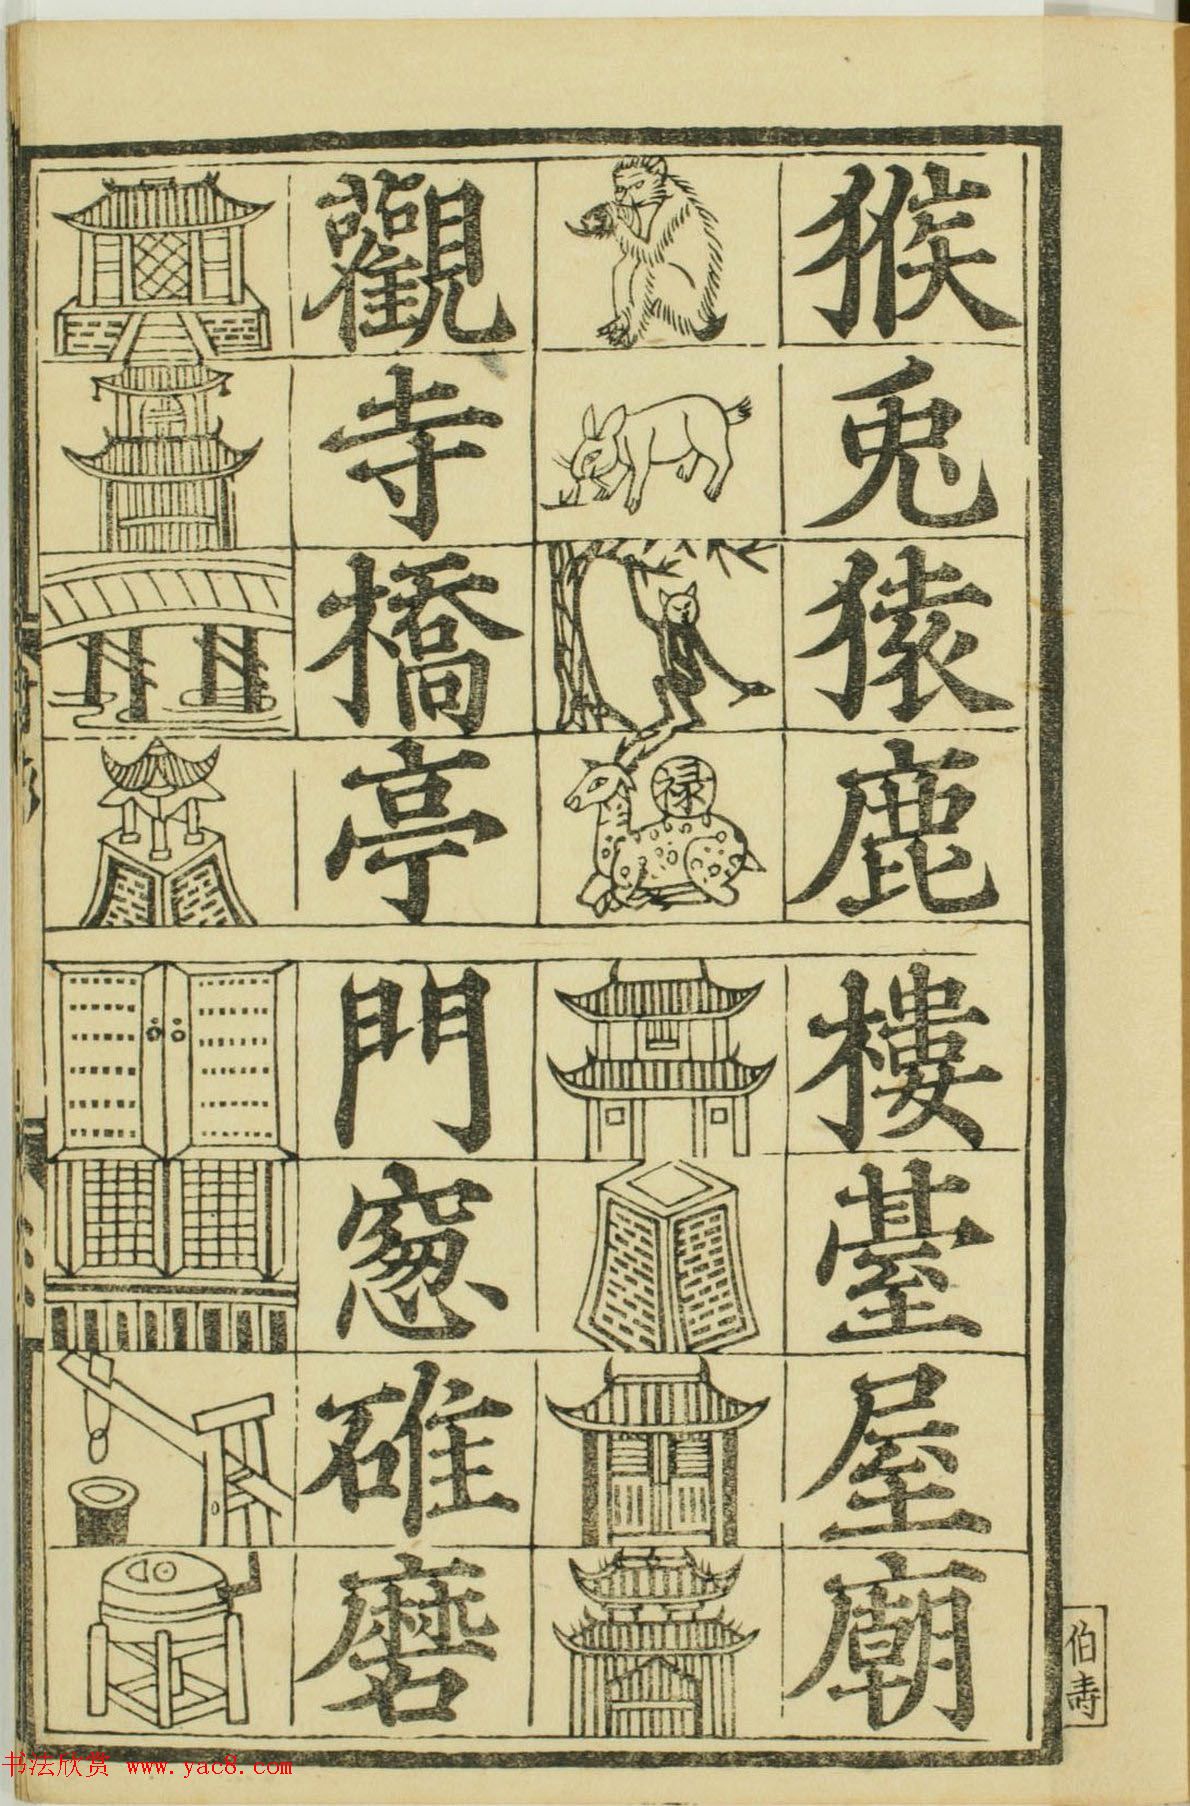 猴兎猿鹿
禄
觀寺橋亭
樓臺屋廟
門窓碓磨
伯壽
书法欣赏 www.yac8.com